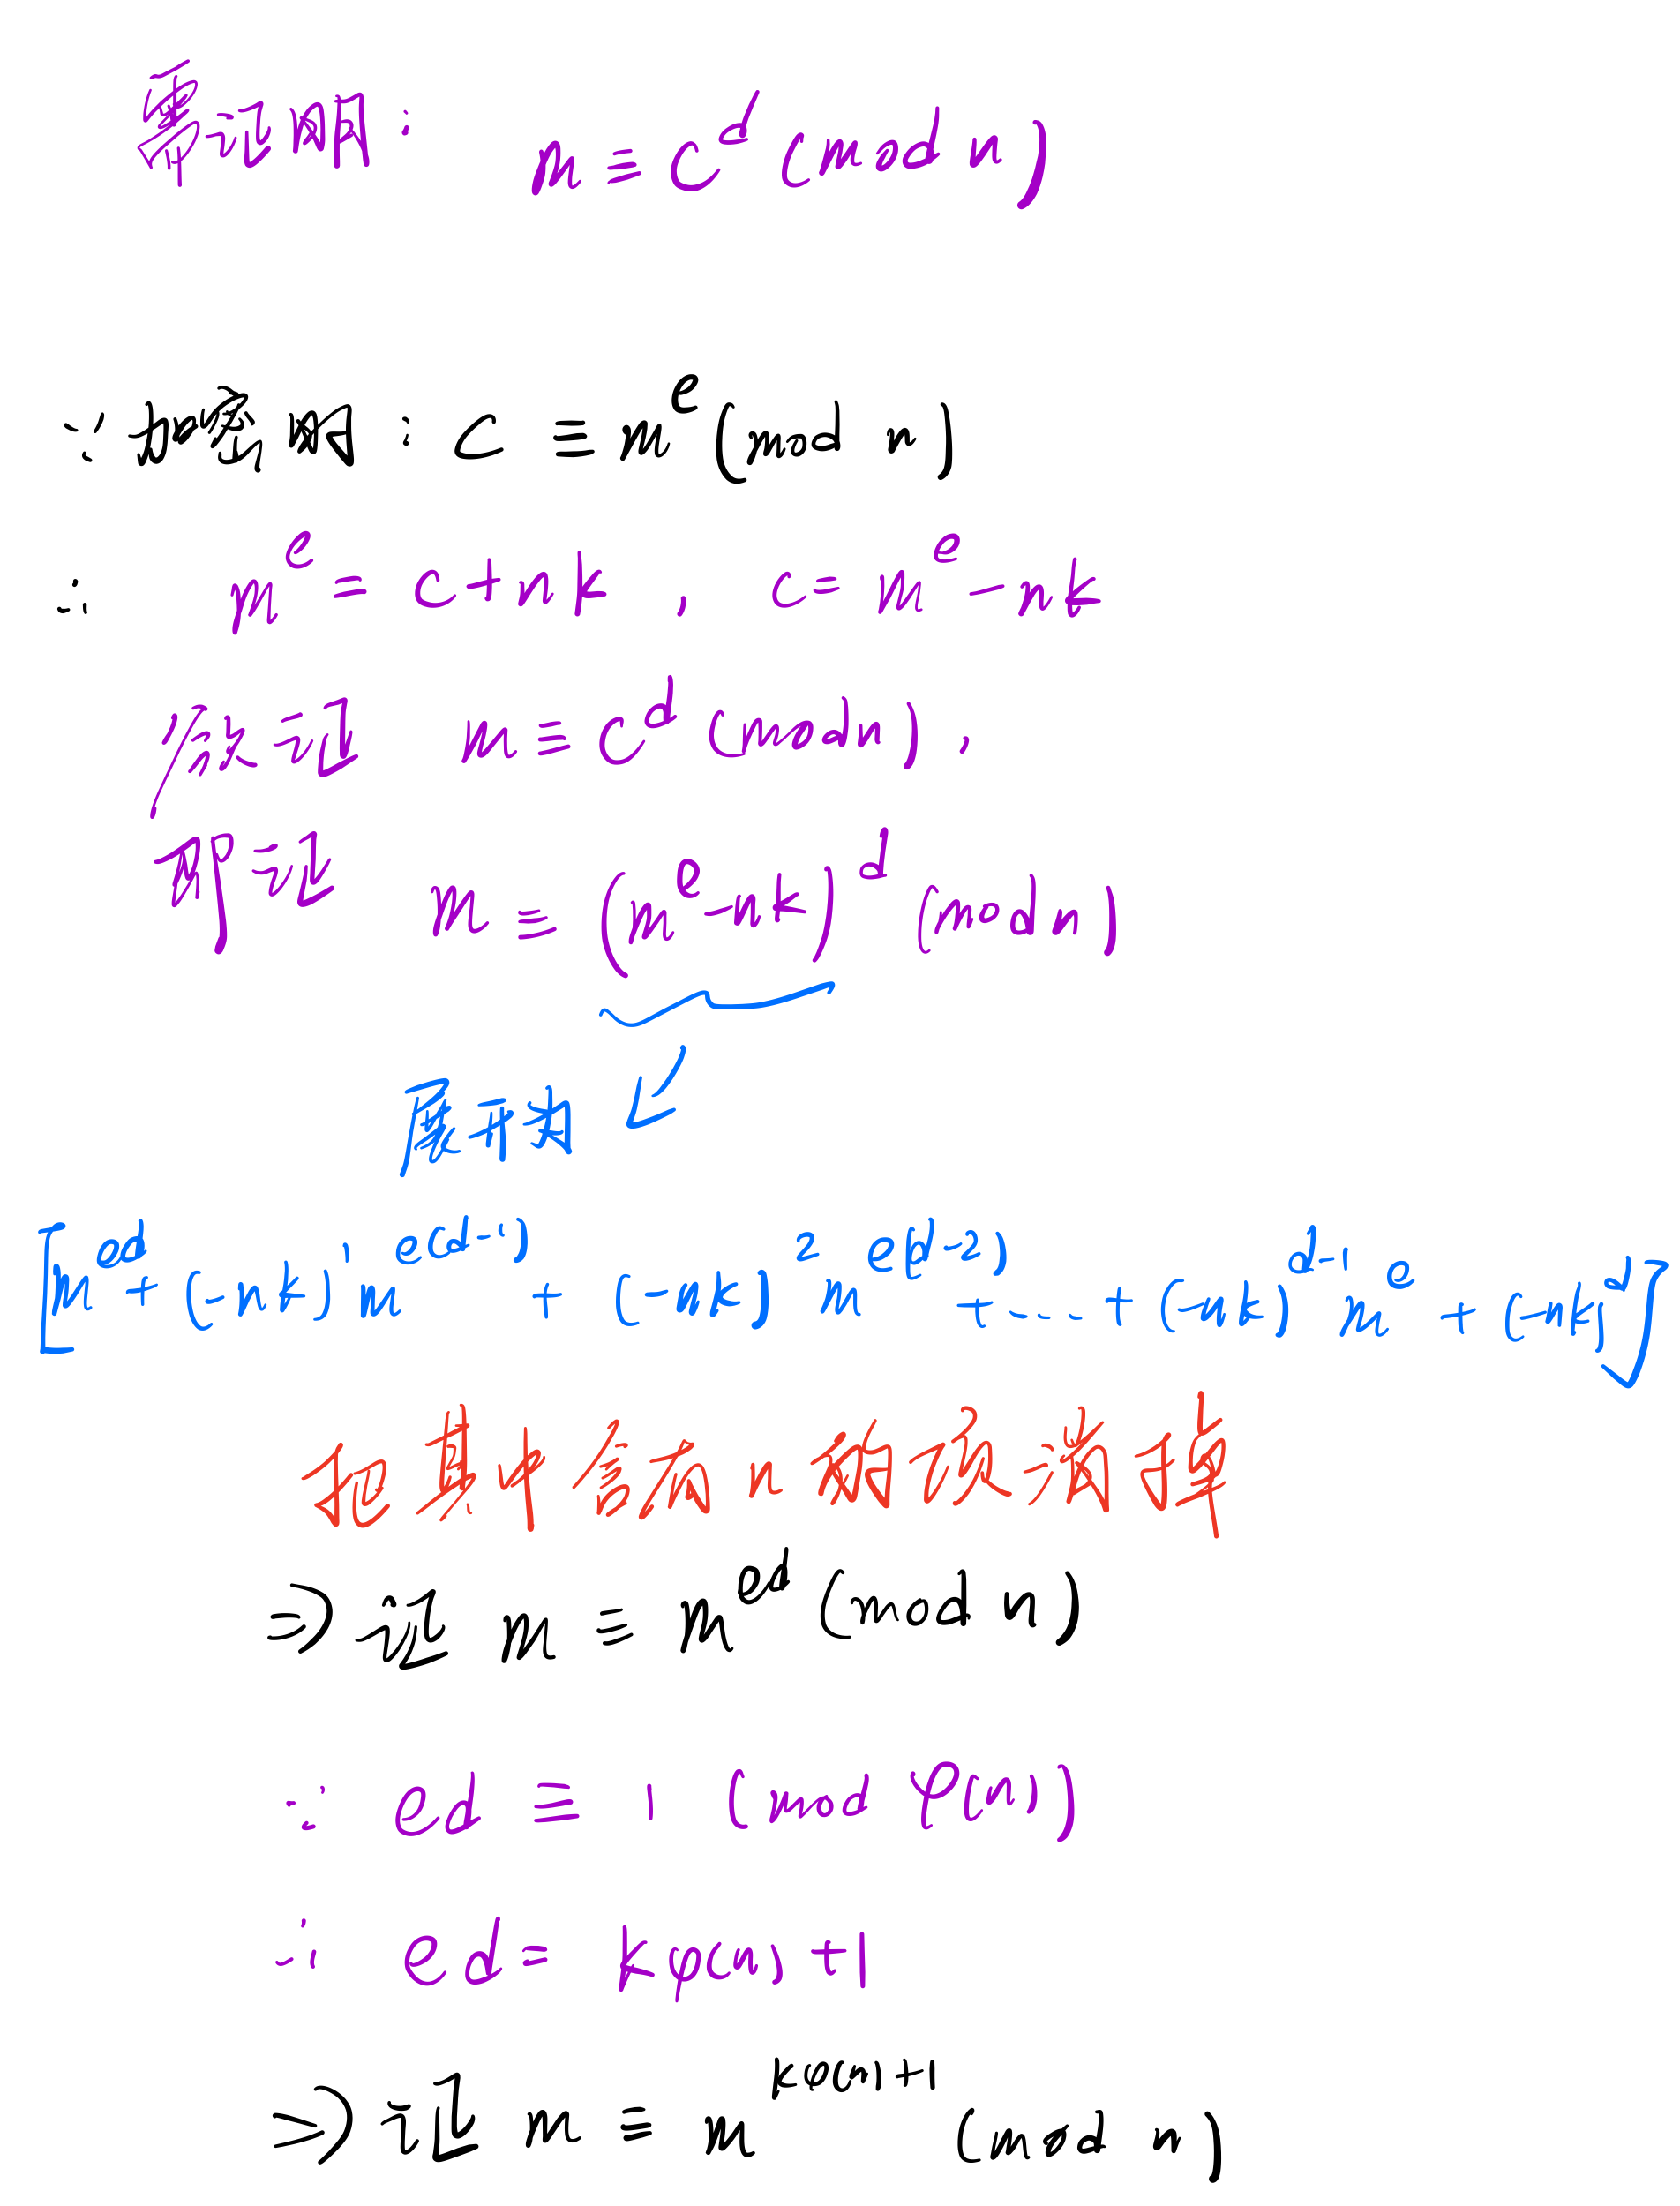 需证明： m ≡ c^d (mod n)
∵ 加密时： c ≡ m^e (mod n)
∴ m^e = c + nk , c = m^e - nk
原证 m ≡ c^d (mod n) ,
即证 m ≡ (m^e - nk)^d (mod n)
展开为
[m^{ed} + (-nk)^1 m^{e(d-1)} + (-nk)^2 m^{e(d-2)} + ... + (-nk)^{d-1} m^e + (-nk)^d]
把其中含有n的项消掉
⇒ 证 m ≡ m^{ed} (mod n)
∵ ed ≡ 1 (mod φ(n))
∴ ed = kφ(n) + 1
⇒ 证 m ≡ m^{kφ(n)+1} (mod n)